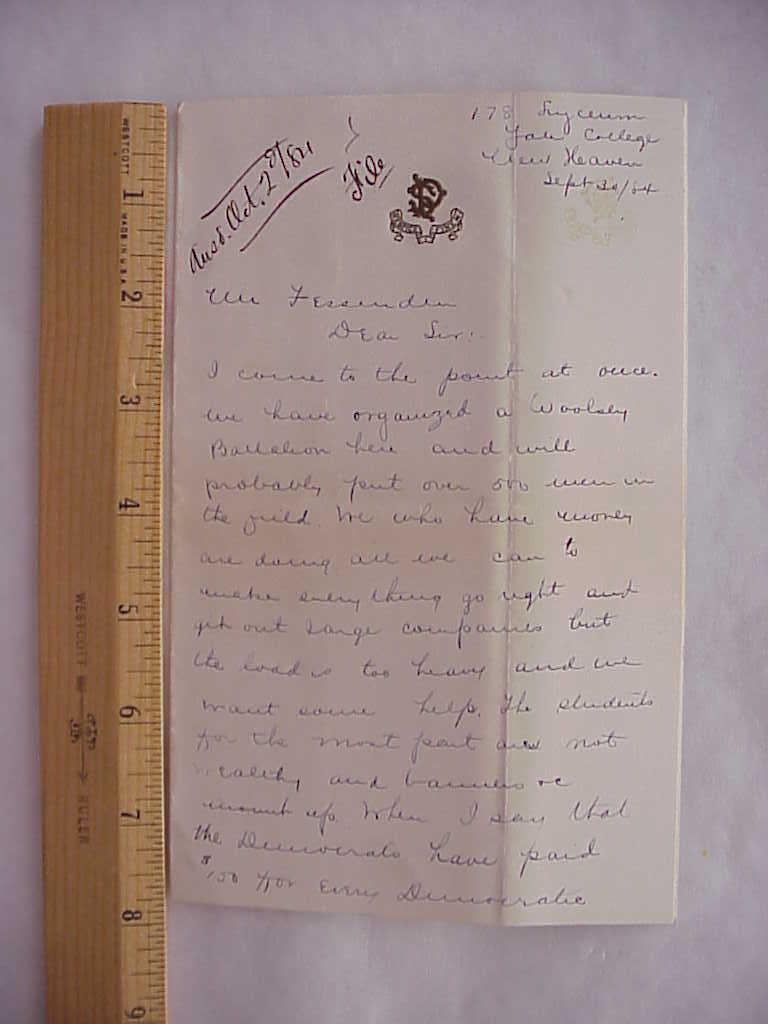 178 Lyceum
Yale College
New Heaven
Sept 30/84
Ansd. Oct. 2d/84
File
Mr Fessenden
Dear Sir:
I come to the point at once.
We have organized a Woolsey
Battalion here and will
probably put over 500 men in
the field. We who have money
are doing all we can to
make everything go right and
get out large companies but
the load is too heavy and we
want some help. The students
for the most part are not
wealthy and banners &c
mount up. When I say that
the Democrats have paid
$150 for every Democratic
WESTCOTT
MADE IN U.S.A.
1
2
3
4
5
6
7
8
9
WESTCOTT
RULER